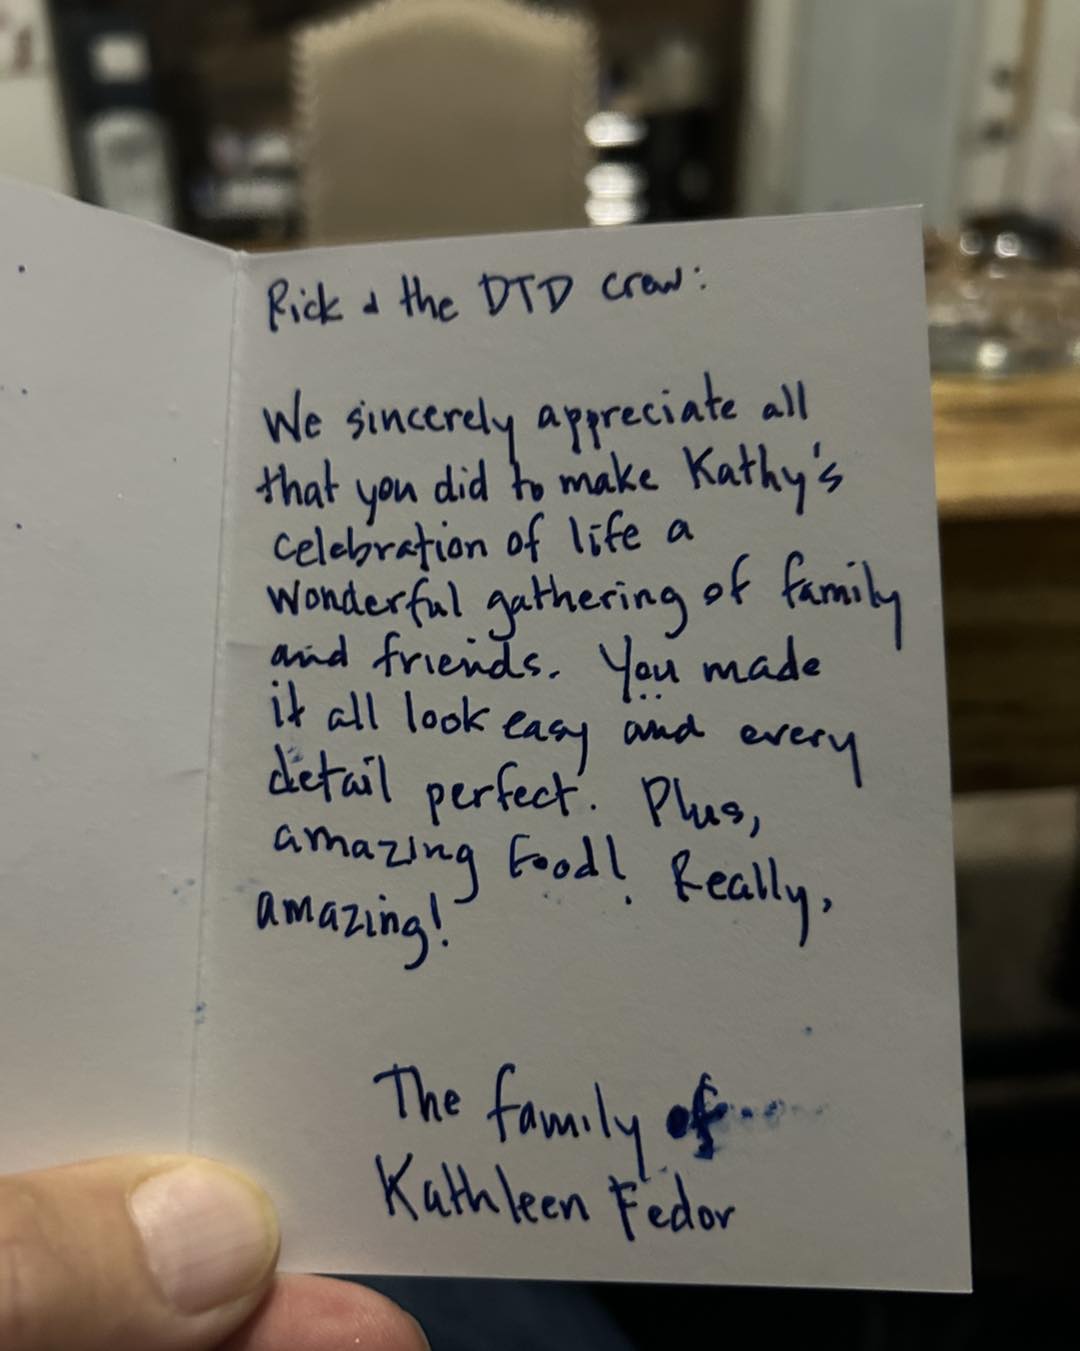 Rick & the DTD crew:
We sincerely appreciate all
that you did to make Kathy's
celebration of life a
wonderful gathering of family
and friends. You made
it all look easy and every
detail perfect. Plus,
amazing food! Really,
amazing!
The family of
Kathleen Fedor